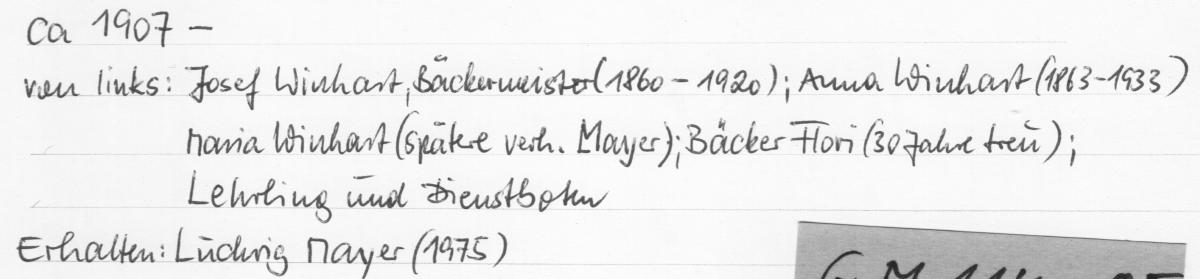 ca 1907 –
von links: Josef Winhart, Bäckermeister (1860 – 1920); Anna Winhart (1863-1933)
Maria Winhart (spätere verh. Mayer); Bäcker Flori (30 Jahre treu);
Lehrling und Dienstboten
Erhalten: Ludwig Mayer (1975)